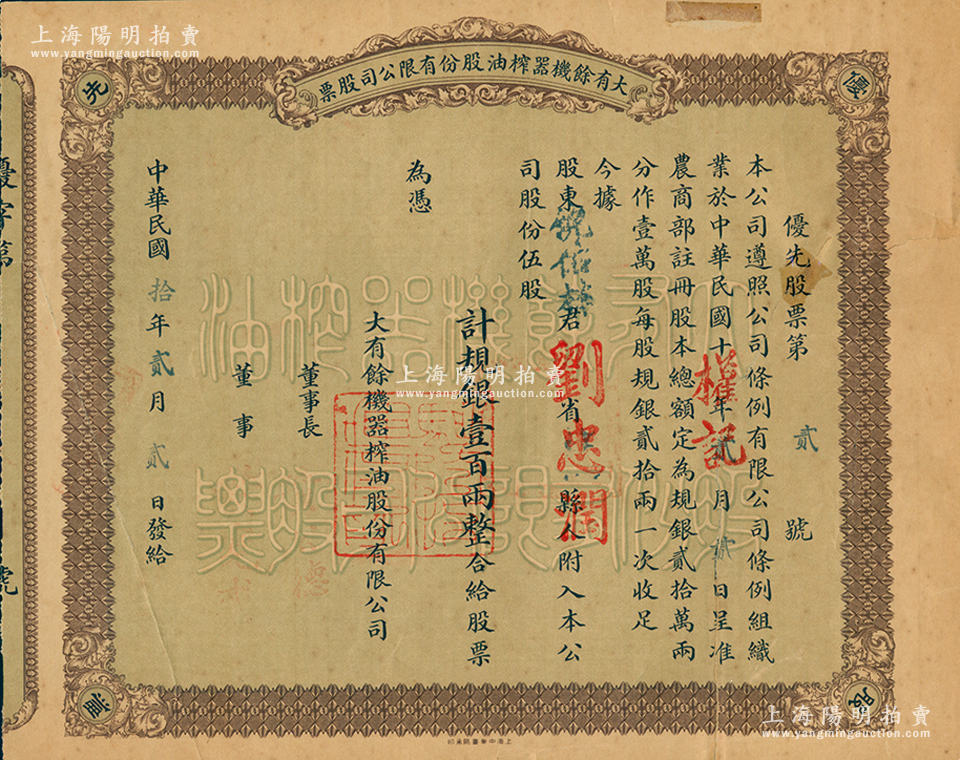 大有餘機器榨油股份有限公司股票
優先
股票
優先股票第 貳 號
本公司遵照公司條例有限公司條例組織
業於中華民國十年貳月貳日呈准
農商部註冊股本總額定為規銀貳拾萬兩
分作壹萬股每股規銀貳拾兩一次收足
今據
股東 君 省 縣人附入本公
司股份伍股
計規銀壹百兩整合給股票
為憑
大有餘機器榨油股份有限公司
董事長
董事
中華民國拾年貳月貳日發給
權記
劉忠
優字第
號
上海陽明拍賣
www.yangmingauction.com
上海陽明拍賣
www.yangmingauction.com
上海陽明拍賣
www.yangmingauction.com